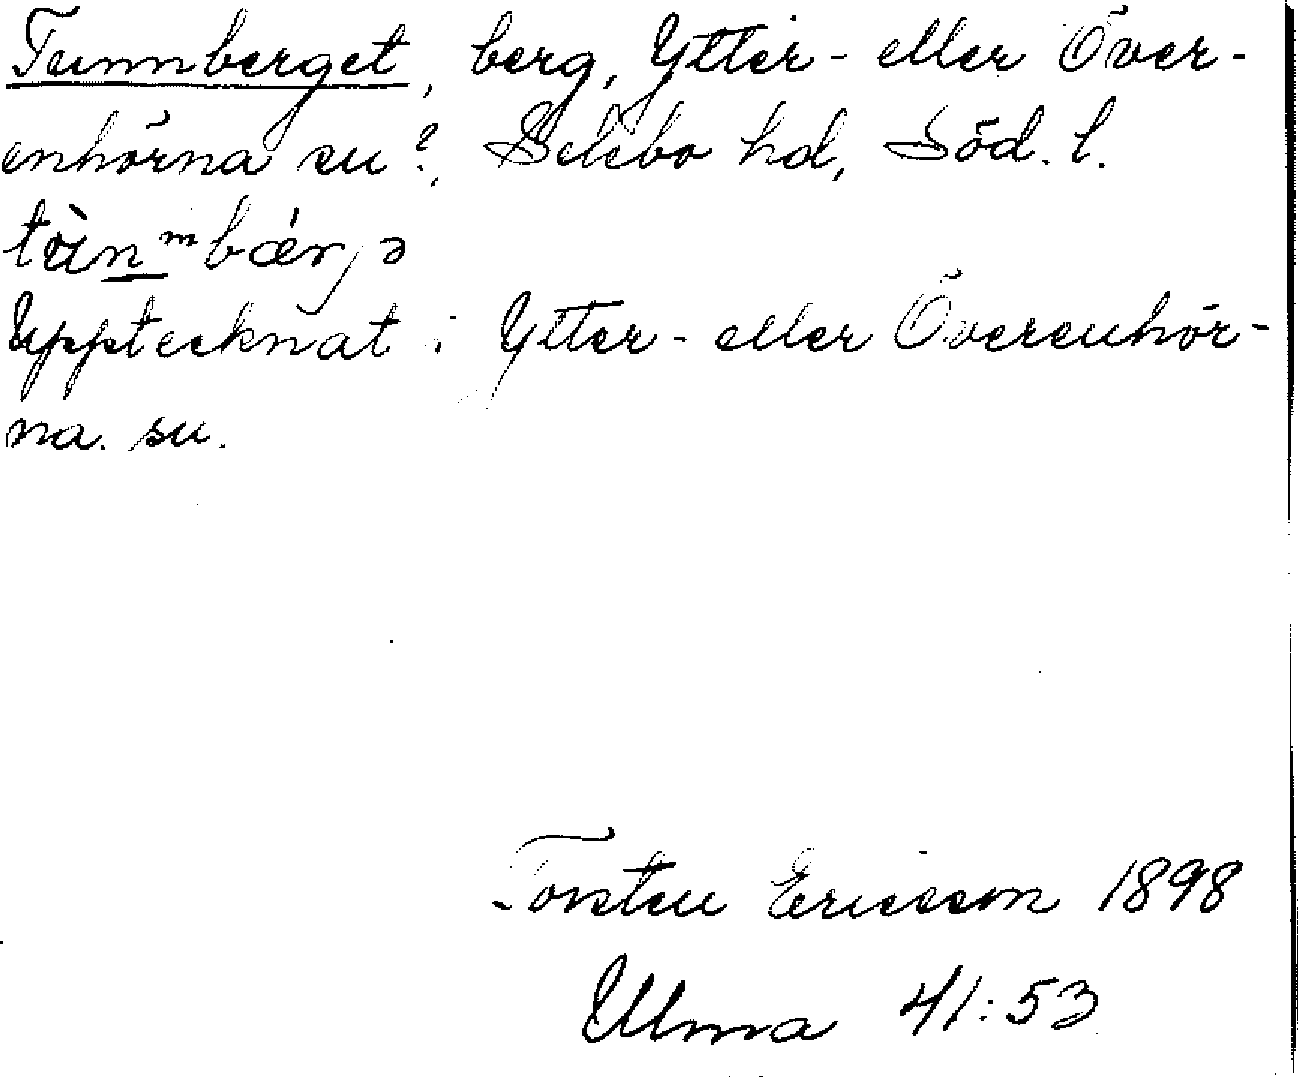 Tunnberget, berg, Ytter- eller Över-
enhörna su?, Selebo hd, Söd. l.
tùn ᵐ bǽrjə
Upptecknat i Ytter- eller Överenhör-
na. su.
Torsten Ericsson 1898
Ulma 41:53